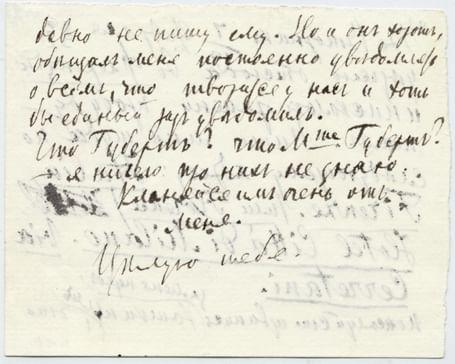 давно не пишу ему. Но и он хорош,
обещал меня постоянно уведомлять
о всем, что творится у нас и хоть
бы единый раз уведомил.
Что Губертъ? что M-me Губертъ?
я ничего про них не знаю.
Кланяйся им очень отъ
меня.
Цѣлую тебя
Hotel Città di Milano. Via
Cerretani